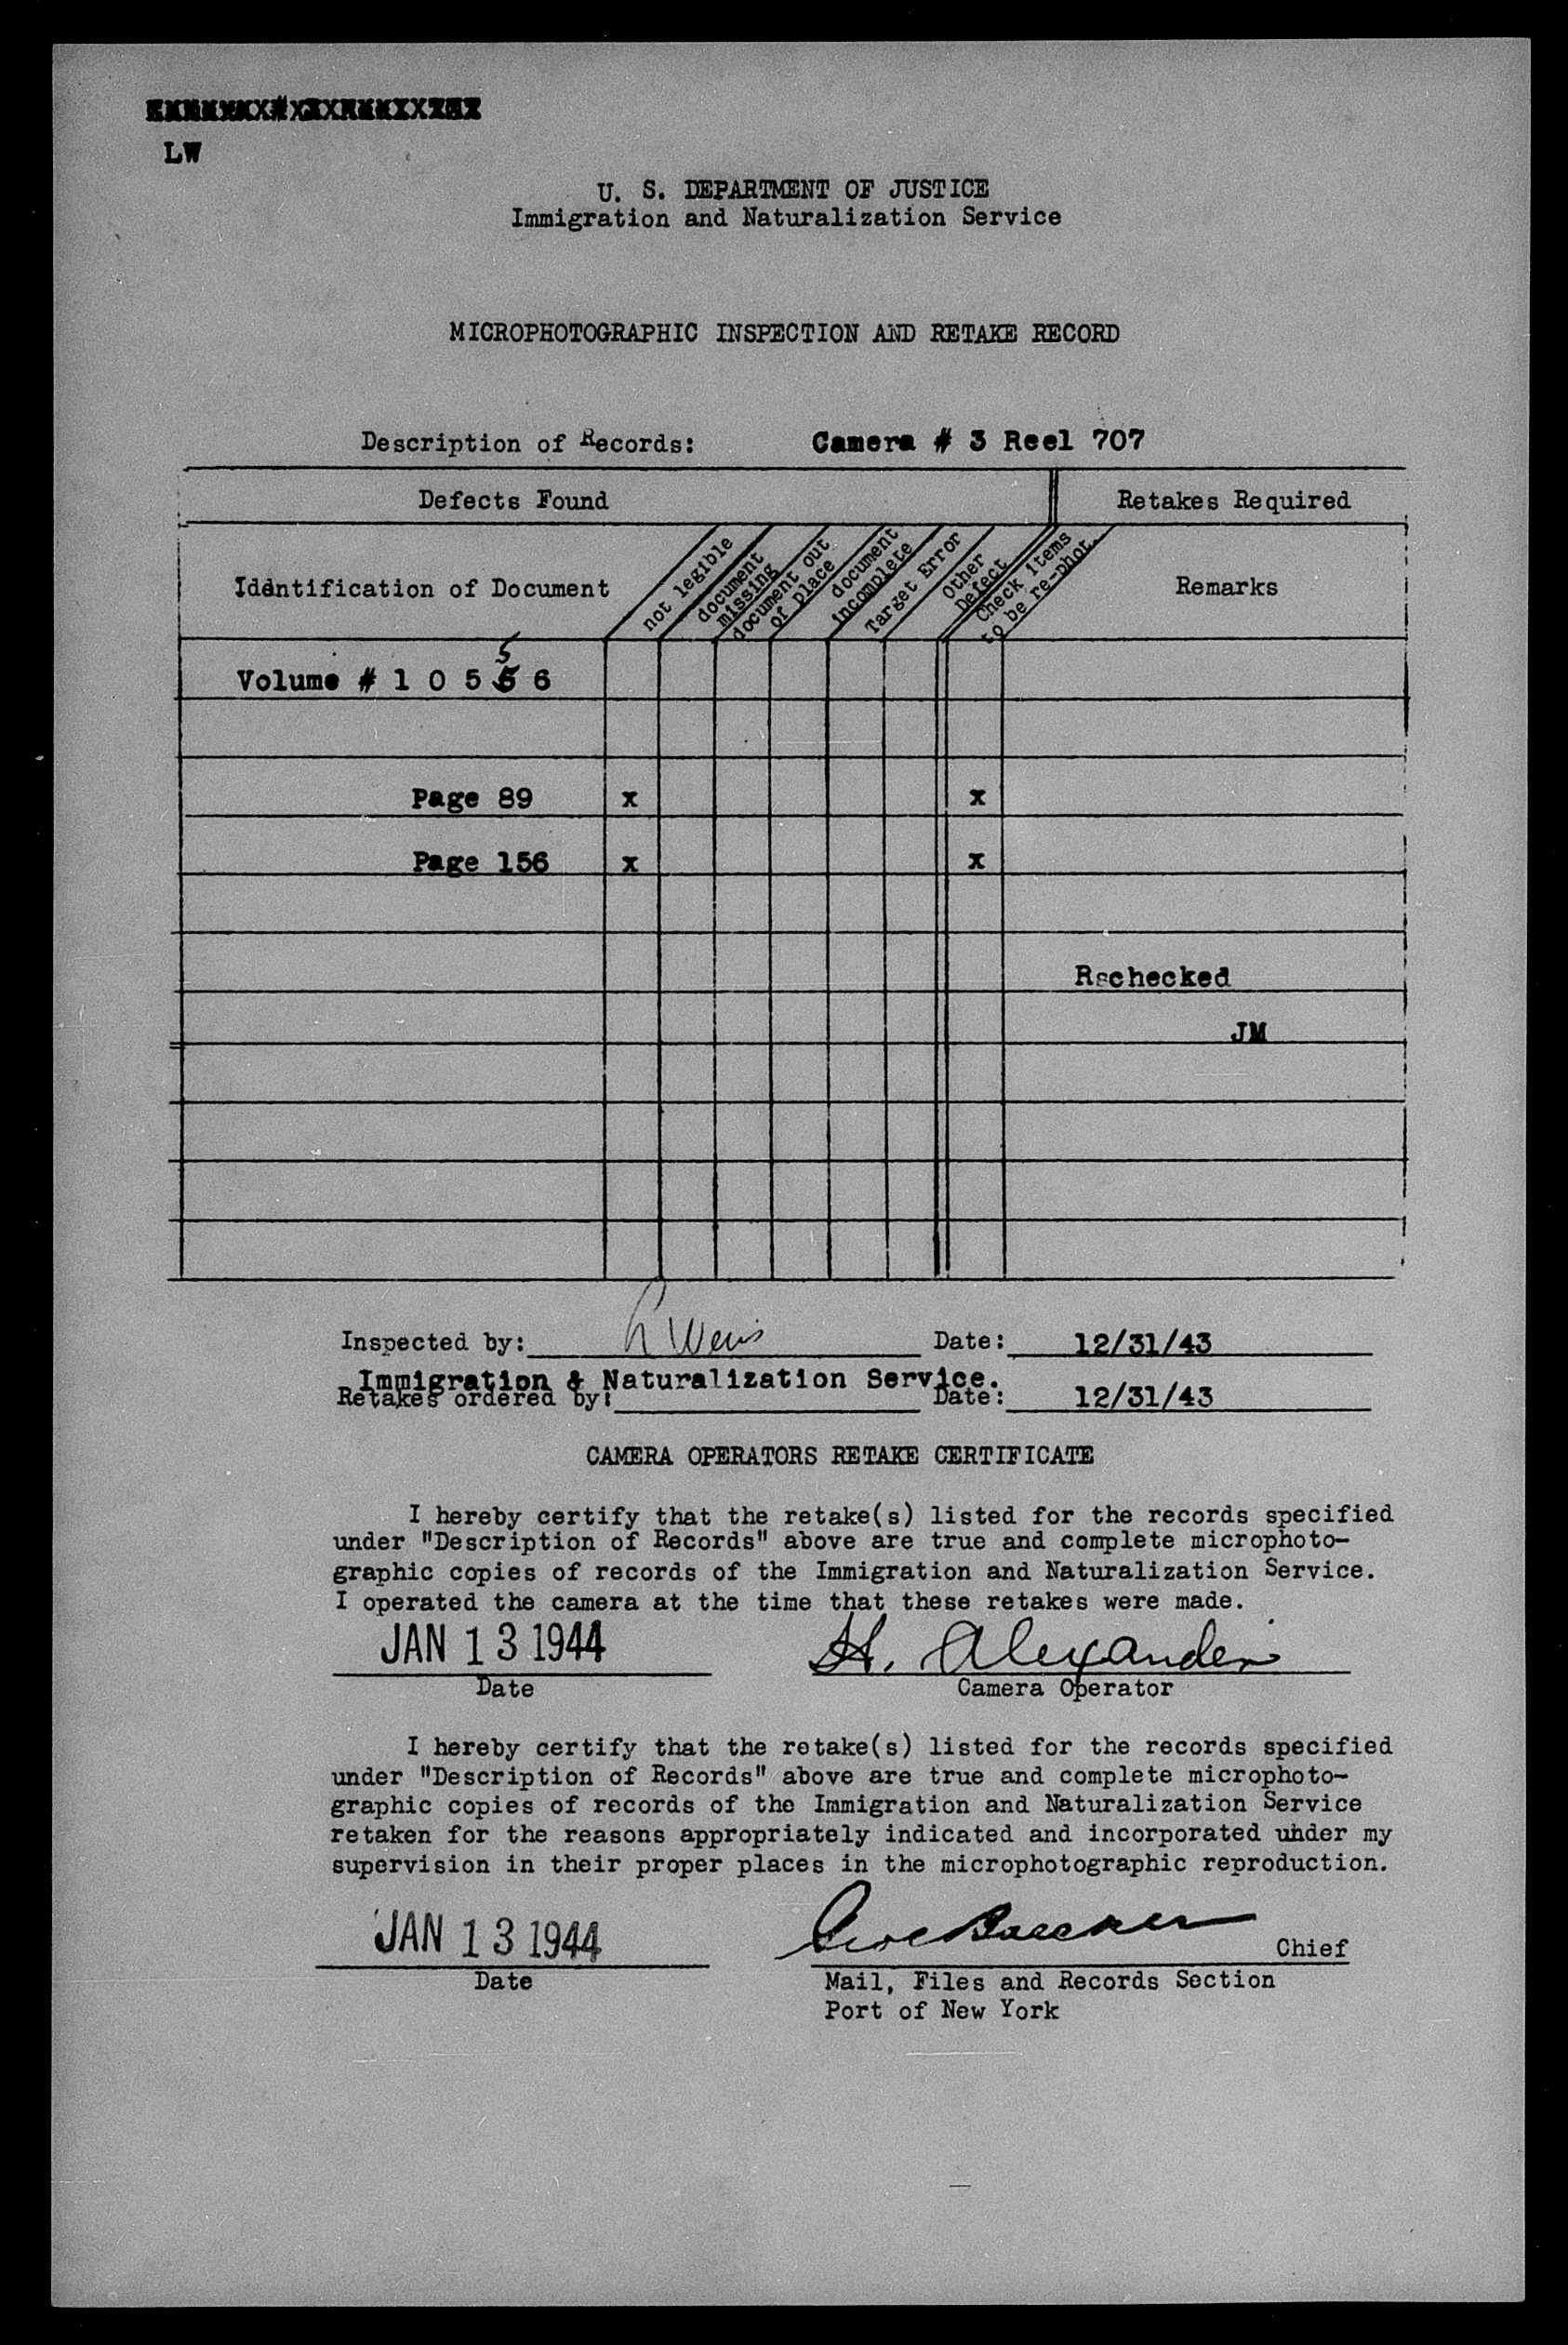 LW
U. S. DEPARTMENT OF JUSTICE
Immigration and Naturalization Service
MICROPHOTOGRAPHIC INSPECTION AND RETAKE RECORD
Description of Records: Camera # 3 Reel 707
Defects Found Retakes Required
Identification of Document
not legible
document missing
document out of place
document incomplete
Target Error
Other Defect
Check items to be re-phot.
Remarks
Volume # 1 0 5 5 6
Page 89 x x
Page 156 x x
Rechecked
JM
Inspected by: Date: 12/31/43
Immigration & Naturalization Service.
Retakes ordered by: Date: 12/31/43
CAMERA OPERATORS RETAKE CERTIFICATE
I hereby certify that the retake(s) listed for the records specified
under "Description of Records" above are true and complete microphoto-
graphic copies of records of the Immigration and Naturalization Service.
I operated the camera at the time that these retakes were made.
JAN 13 1944 H. Alexander
Date Camera Operator
I hereby certify that the retake(s) listed for the records specified
under "Description of Records" above are true and complete microphoto-
graphic copies of records of the Immigration and Naturalization Service
retaken for the reasons appropriately indicated and incorporated under my
supervision in their proper places in the microphotographic reproduction.
JAN 13 1944 Chief
Date Mail, Files and Records Section
Port of New York